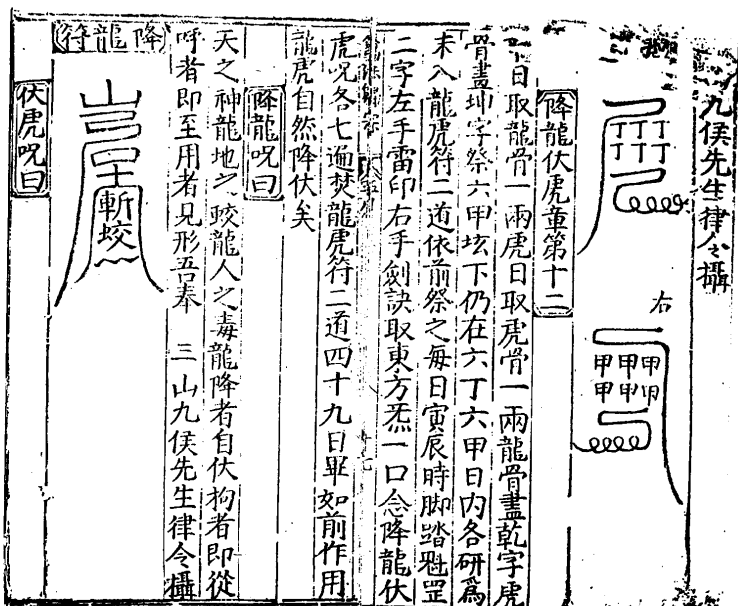 九侯先生律令攝
丁丁丁丁丁丁
右
甲甲甲甲甲甲
降龍伏虎章第十二
日取龍骨一兩虎日取虎骨一兩龍骨畫乾字虎
骨畫坤字祭六甲垓下仍在六丁六甲日內各研爲
末入龍虎符二道依前祭之每日寅辰時脚踏魁罡
二字左手雷印右手劍訣取東方炁一口念降龍伏
虎呪各七遍焚龍虎符二道四十九日畢如前作用
龍虎自然降伏矣
降龍呪曰
天之神龍地之蛟龍人之毒龍降者自伏拘者即從
呼者即至用者見形吾奉 三山九侯先生律令攝
降龍符
斬蛟
伏虎呪曰